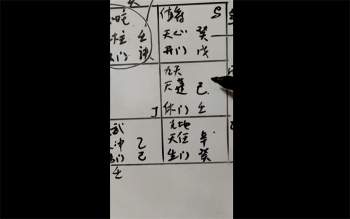 值符 S
天心 癸
开门 戊
九天
天蓬 己
休门 壬
九地
天任 辛
生门 癸
蛇
柱 壬
门
武
冲 乙
门 己
壬